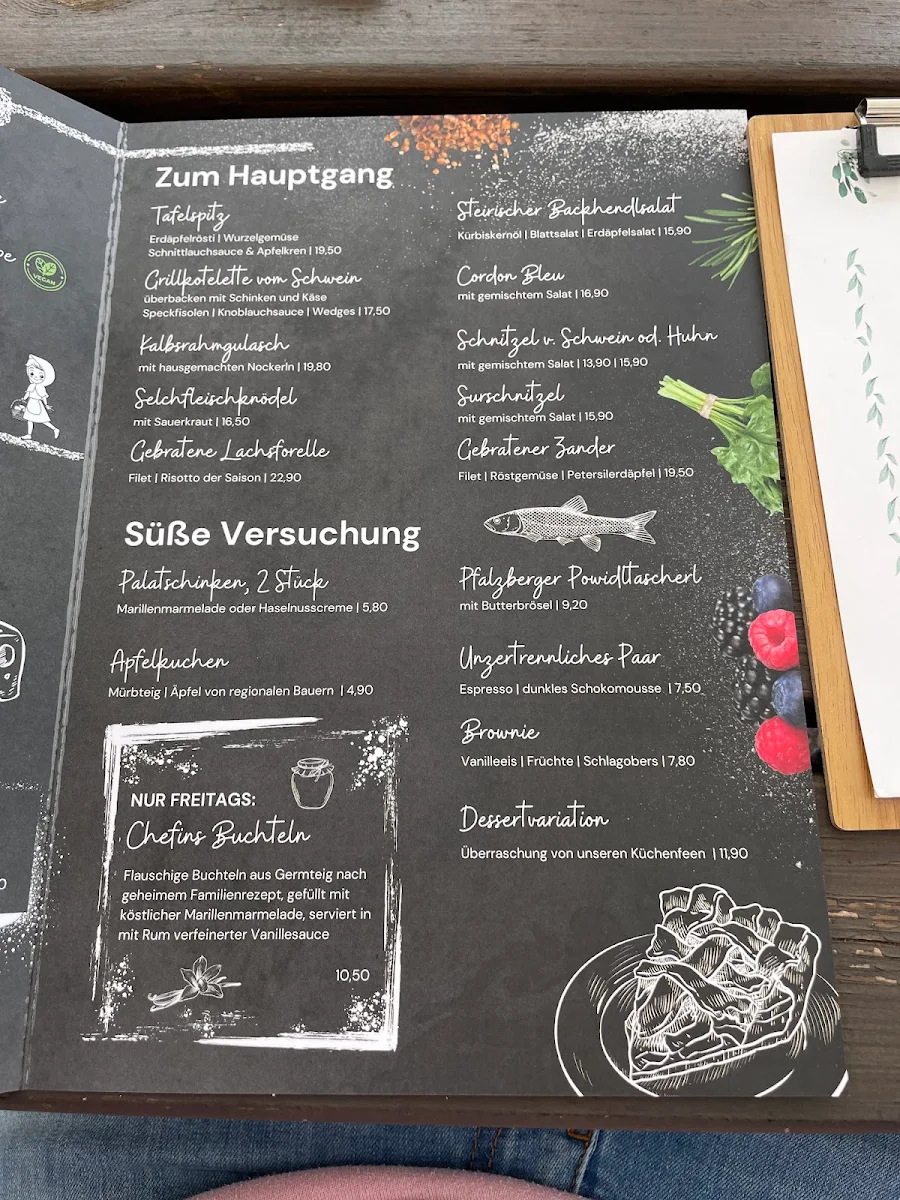 Zum Hauptgang
Tafelspitz
Erdäpfelrösti | Wurzelgemüse
Schnittlauchsauce & Apfelkren | 19,50
Grillkotelette vom Schwein
überbacken mit Schinken und Käse
Speckfisolen | Knoblauchsauce | Wedges | 17,50
Kalbsrahmgulasch
mit hausgemachten Nockerln | 19,80
Selchfleischknödel
mit Sauerkraut | 16,50
Gebratene Lachsforelle
Filet | Risotto der Saison | 22,90
Steirischer Backhendlsalat
Kürbiskernöl | Blattsalat | Erdäpfelsalat | 15,90
Cordon Bleu
mit gemischtem Salat | 16,90
Schnitzel v. Schwein od. Huhn
mit gemischtem Salat | 13,90 | 15,90
Surschnitzel
mit gemischtem Salat | 15,90
Gebratener Zander
Filet | Röstgemüse | Petersilerdäpfel | 19,50
Süße Versuchung
Palatschinken, 2 Stück
Marillenmarmelade oder Haselnusscreme | 5,80
Apfelkuchen
Mürbteig | Äpfel von regionalen Bauern | 4,90
NUR FREITAGS:
Chefins Buchteln
Flauschige Buchteln aus Germteig nach
geheimem Familienrezept, gefüllt mit
köstlicher Marillenmarmelade, serviert in
mit Rum verfeinerter Vanillesauce
10,50
Pfalzberger Powidltascherl
mit Butterbrösel | 9,20
Unzertrennliches Paar
Espresso | dunkles Schokomousse | 7,50
Brownie
Vanilleeis | Früchte | Schlagobers | 7,80
Dessertvariation
Überraschung von unseren Küchenfeen | 11,90
VEGAN